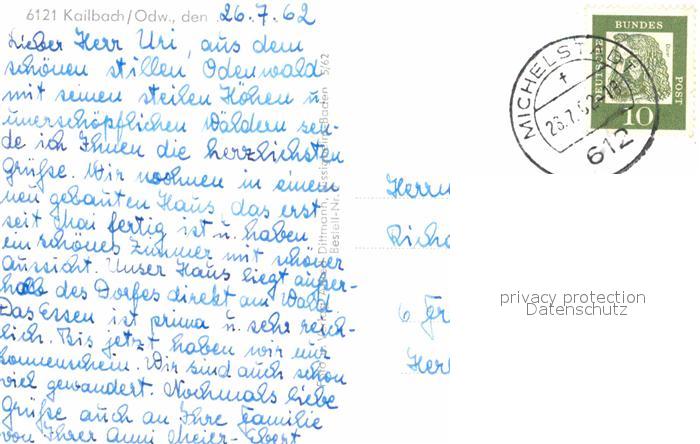 6121 Kailbach/Odw., den 26.7.62
Lieber Herr Uri, aus dem
schönen stillen Odenwald
mit seinen steilen Höhen u.
unerschöpflichen Wäldern sen-
de ich Ihnen die herzlichsten
Grüße. Wir wohnen in einem
neu gebauten Haus, das erst
seit Mai fertig ist u. haben
ein schönes Zimmer mit schöner
Aussicht. Unser Haus liegt außer-
halb des Dorfes direkt am Wald.
Das Essen ist prima u. sehr reich-
lich. Bis jetzt haben wir nur
Sonnenschein. Wir sind auch schon
viel gewandert. Nochmals liebe
Grüße auch an Ihre Familie
von Ihrer Anni Meier-Ebert
Dittmann,
Baden 5/62
Bestell-Nr.
BUNDES
DEUTSCHE
POST
10
MICHELSTADT
26.7.62
612
Herrn
Richa
6 Fr
Her
privacy protection
Datenschutz